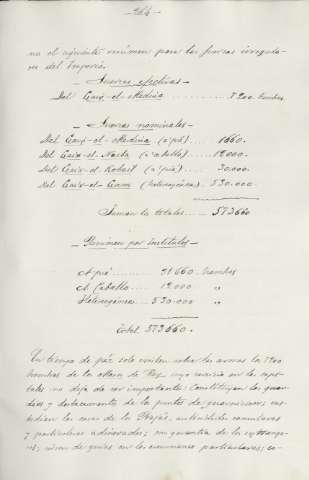 - 264 -
no el siguiente resúmen para las fuerzas irregula-
res del Imperio.
- Fuerzas efectivas -
Del Gaix-el-Medina ........ 1200 hombres
- Fuerzas nominales -
Del Gaix-el-Medina (a pié) .... 1660.
Del Gaix-el-Naiba (a caballo) .... 12000
Del Gaix-el-Kobail (a pié) .... 30.000
Del Gaix-el-Giam (heterogéneas) .. 530.000
Suman los totales ---- 573660
- Resúmen por institutos -
A pié ........ 31660 hombres
A Caballo ..... 12000 "
Heterogéneas .. 530.000 "
Total 573660.
En tiempo de paz solo existen sobre las armas los 1200
hombres de la de Rey cuyo servicio en las capi-
tales no deja de ser importante: Constituyen las guar-
dias y destacamentos de los puntos de guarnicion; cus-
todian las casas de los Bajás, autoridades consulares
y particulares adinerados; son garantía de los extrange-
ros; sirven de guías en las escursiones particulares; es-